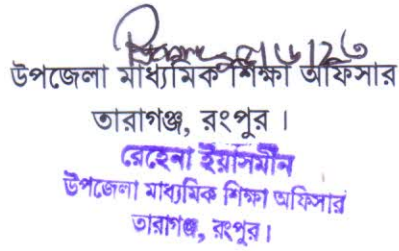 উপজেলা মাধ্যমিক শিক্ষা অফিসার
তারাগঞ্জ, রংপুর ।
রেহেনা ইয়াসমীন
উপজেলা মাধ্যমিক শিক্ষা অফিসার
তারাগঞ্জ, রংপুর।